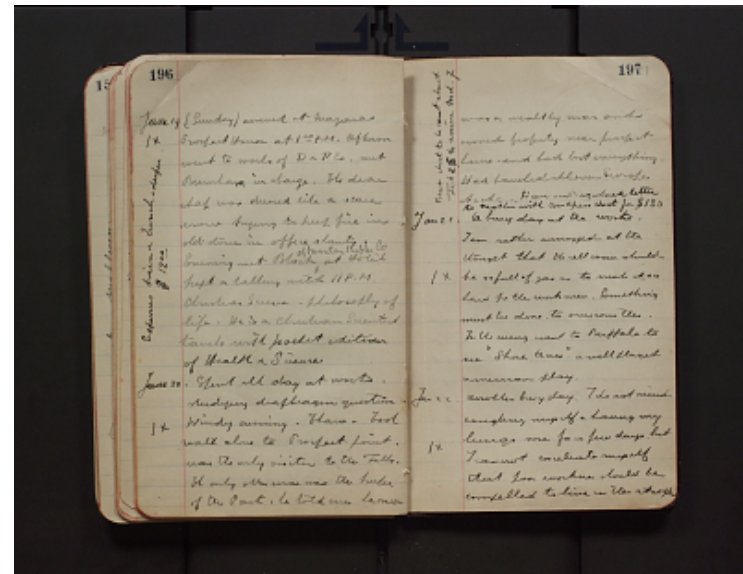 196
Jan 19 (Sunday) arrived at Niagara
1 x Prospect House at 1 P.M. Afternoon
went to works of D & P Co, met
in charge. The dear
chap was dressed like a scare
crow trying to keep fire in
old stove in office shanty.
Evening met at Hotel
kept a talking until 11 P.M.
Christian Science - philosophy of
life. He is a Christian Scientist
travels with pocket edition
of Health & Science
Jan 20. Spent all day at works.
studying diaphragm question.
1 x Windy evening. Took
walk alone to Prospect point.
was the only visitor to the Falls.
The only other was the keeper
of the Park. he told me he
Expenses train & lunch & sleeper
$ 12.00
197
was a wealthy man and
owned property near prospect
house and had lost everything.
Had travelled all over Europe
letter
to with check for $130
Jan 21. A busy day at the works.
I am rather annoyed at the
thought that the cells should
1 x be so full of gas as to make it so
hard for the workmen. Something
must be done to overcome this.
In the evening went to Buffalo to
see "Shore Acres" a well played
american play.
Jan 22 another busy day. I do not mind
coughing myself & having my
lungs sore for a few days but
1 x I cannot reconcile myself
that poor workmen should be
compelled to live in this atmosph